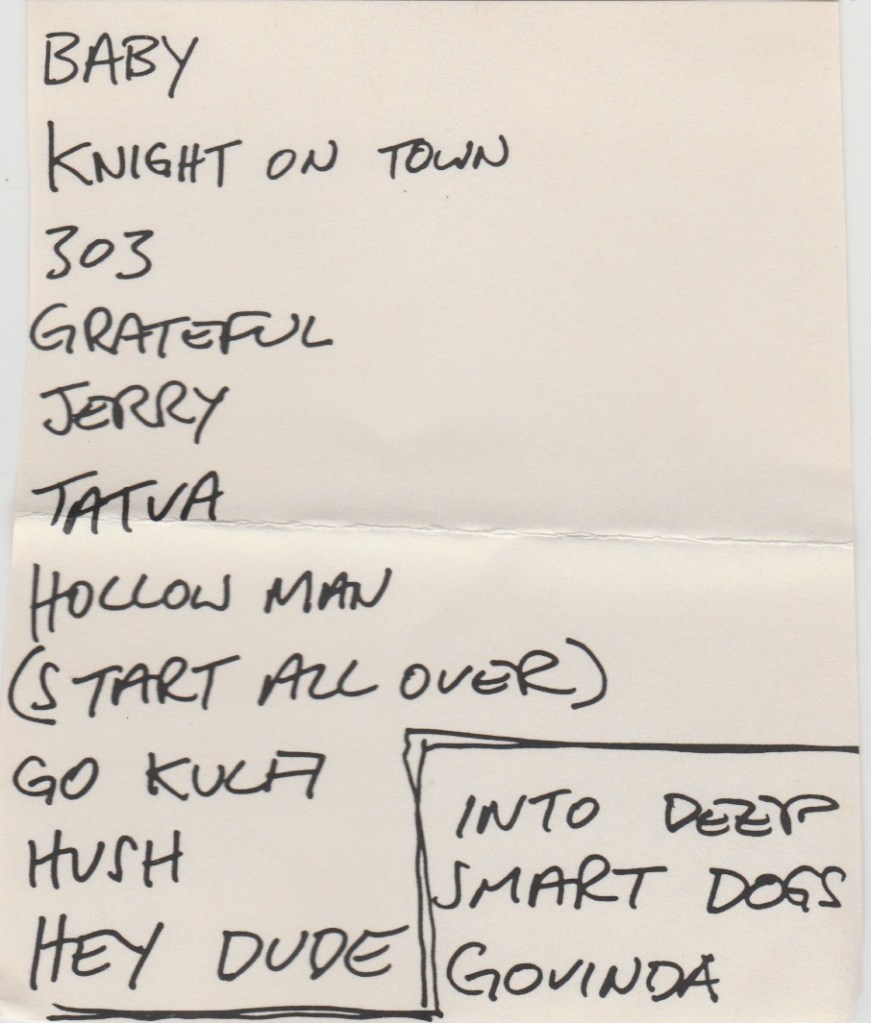 BABY
KNIGHT ON TOWN
303
GRATEFUL
JERRY
TATVA
HOLLOW MAN
(START ALL OVER)
GO KULA
HUSH
HEY DUDE
INTO DEEP
SMART DOGS
GOVINDA